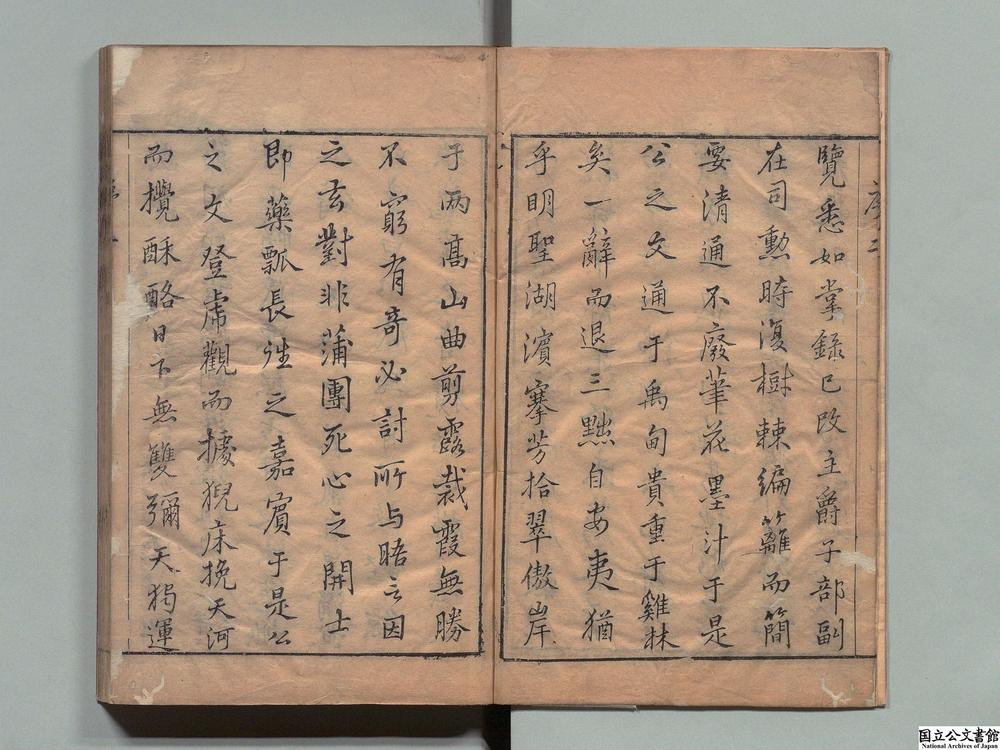 序二
覽悉如掌錄已改主爵子部副
在司勳時復樹棘編籬而簡
要清通不廢筆花墨汁于是
公之文通于禹甸貴重于雞林
矣一辭而退三黜自安夷猶
乎明聖湖濱搴芳拾翠傲岸
于两高山曲剪露裁霞無勝
不窮有奇必討所与晤言因
之玄對非蒲團死心之開士
即藥瓢長往之嘉賓于是公
之文登席觀而據猊床挽天河
而攪酥酪日下無雙彌天獨運
国立公文書館
National Archives of Japan